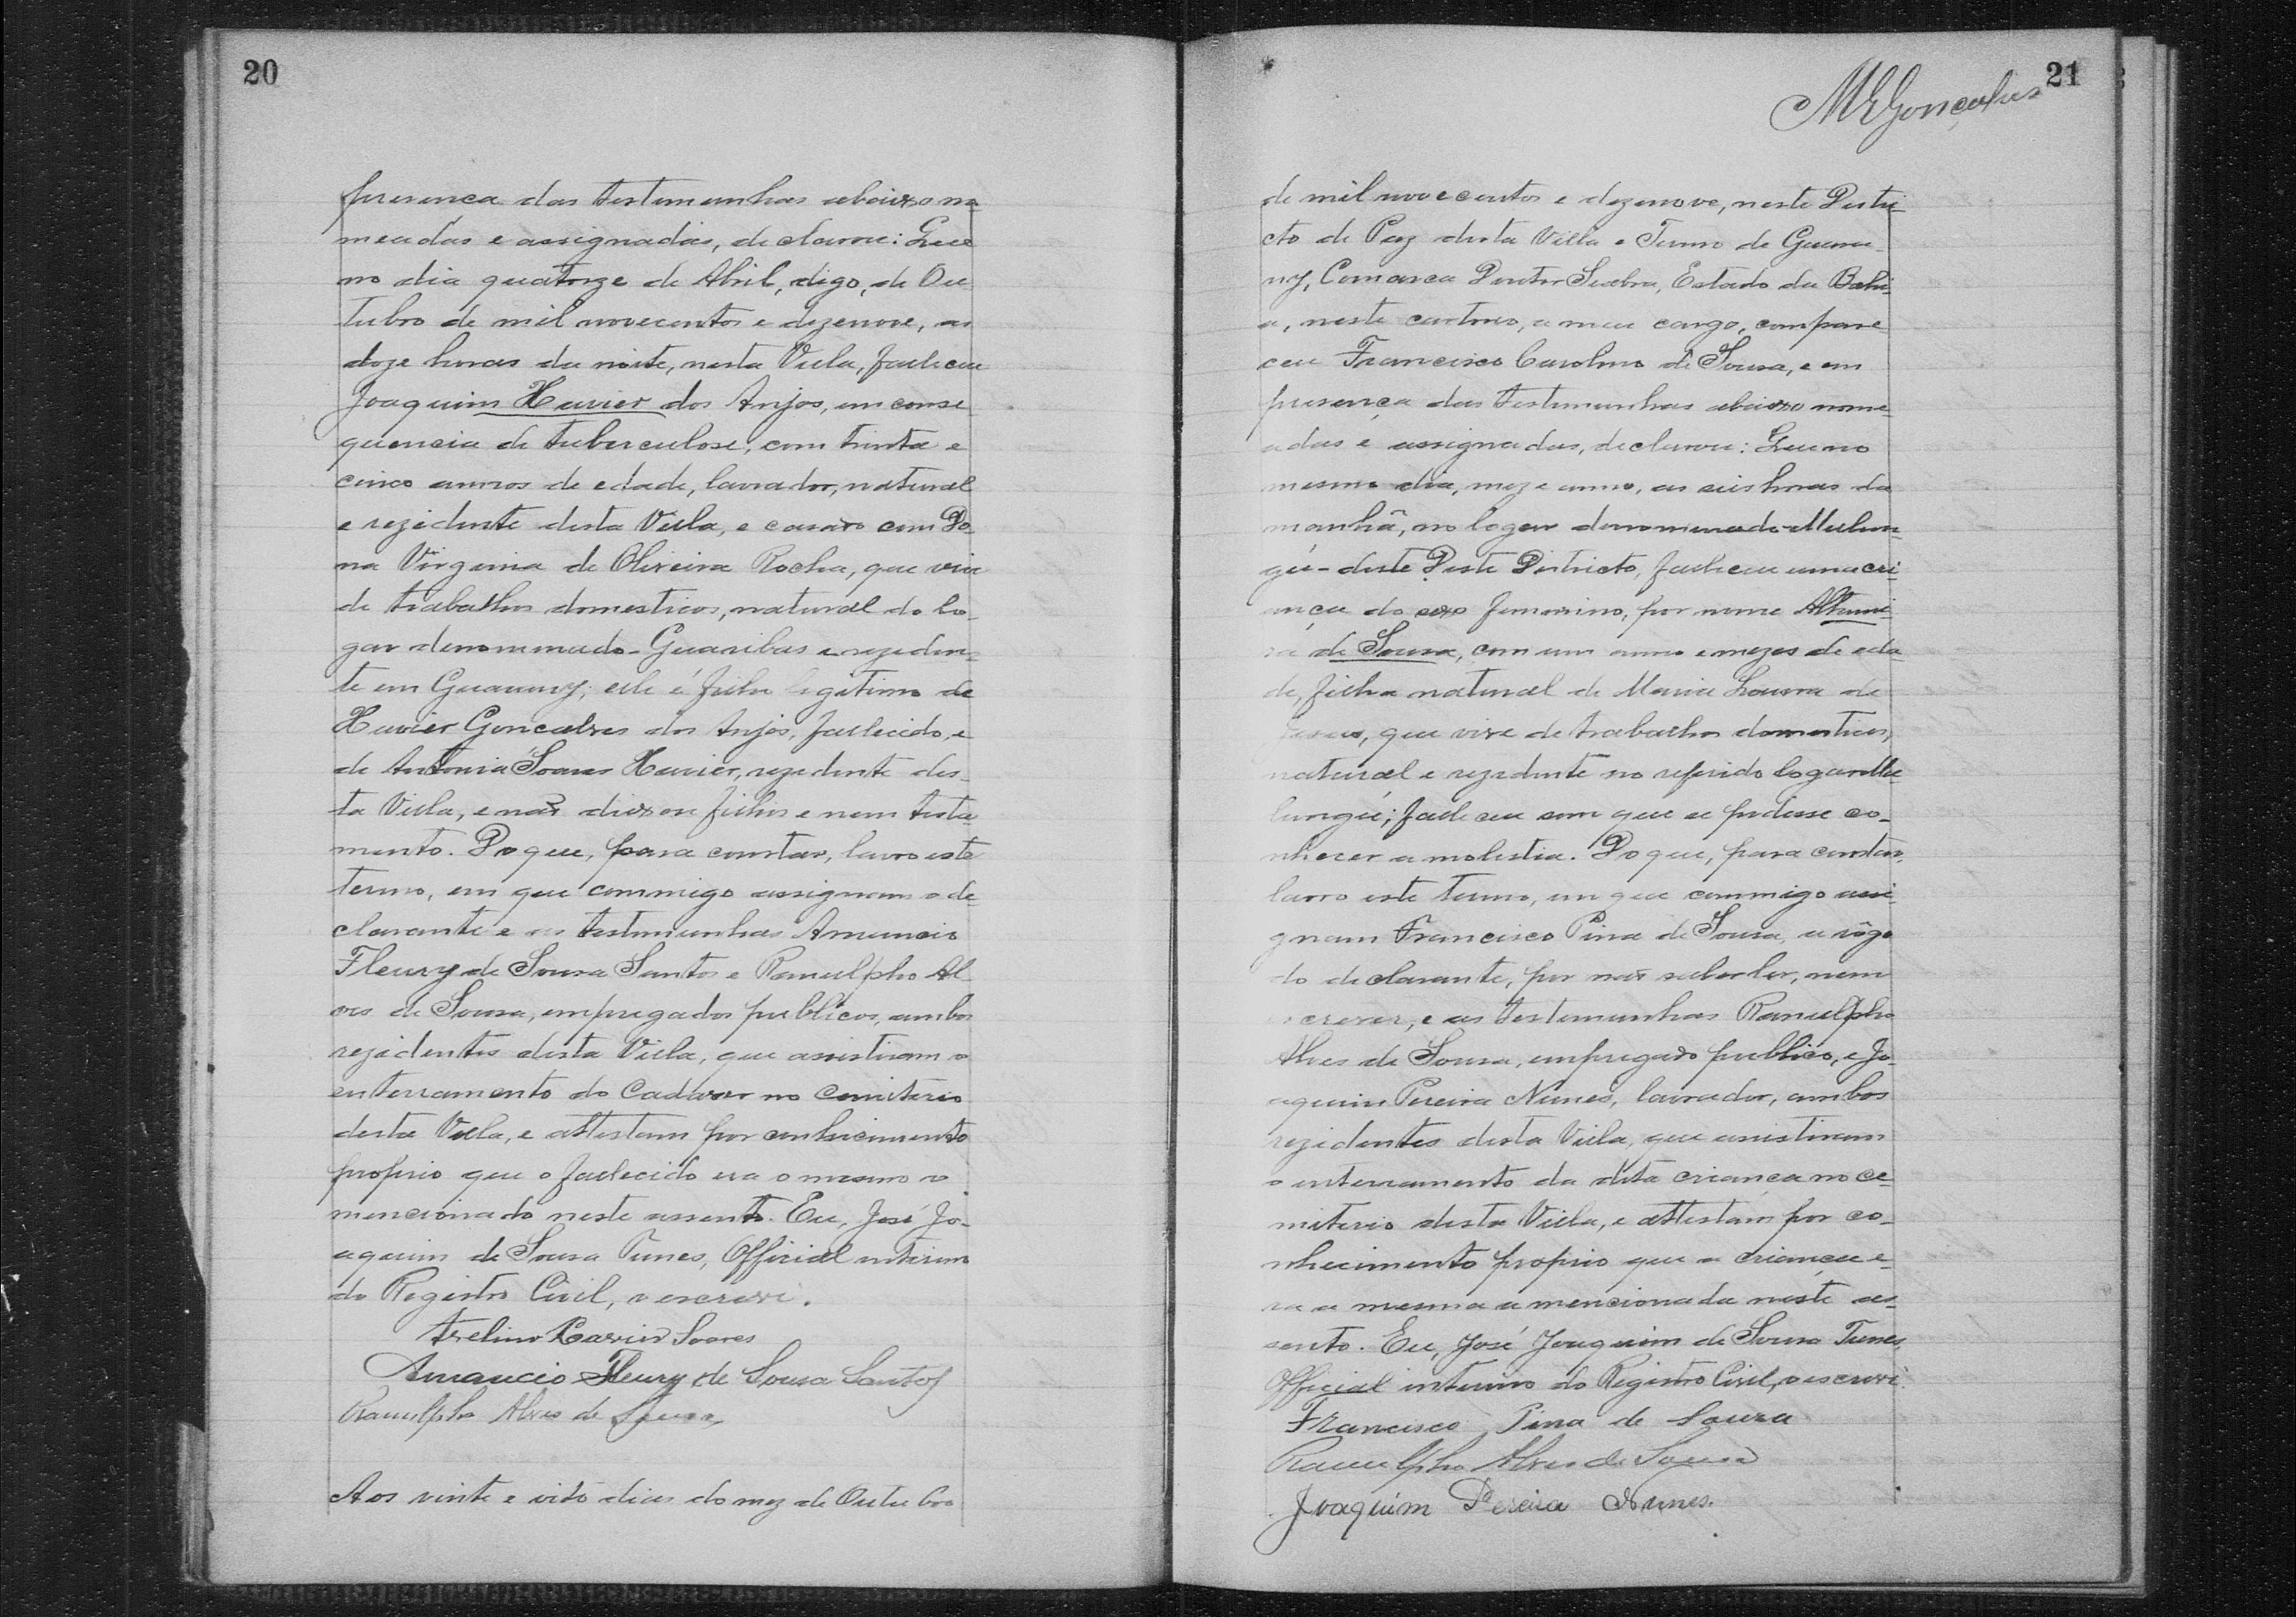 20
presença das testemunhas abaixo no-
meadas e assignadas, declarou: Que
no dia quatorze de Abril, digo, de Ou
tubro de mil novecentos e dezenove, as
doze horas da noite, nesta Villa, falleceu
Joaquim Xavier dos Anjos, em conse
quencia de tuberculose, com trinta e
cinco annos de edade, lavrador, natural
e rezidente desta Villa, e casado com Do-
na Virginia de Oliveira Rocha, que vive
de trabalhos domesticos, natural do lo-
gar denominado - Guaribas e reziden-
te em Guarany; elle é filho legitimo de
Xavier Gonçalves dos Anjos, fallecido, e
de Antonia Soares Xavier, rezidente des-
ta Villa, e não deixou filhos e nem testa-
mento. Do que, para constar, lavro este
termo, em que commigo assignam o de-
clarante e as testemunhas Amancio
Fleury de Sousa Santos e Ranulpho Al
ves de Sousa, empregados publicos, ambos
rezidentes desta Villa, que assistiram o
enterramento do Cadaver no Cemiterio
desta Villa, e attestam por conhecimento
proprio que o fallecido era o mesmo o
mencionado neste assento. Eu, José Jo-
aquim de Sousa Tunes, Official interino
do Registro Civil, o escrevi.
Avelino Xavier Soares
Amancio Fleury de Sousa Santos
Ranulpho Alves de Sousa
Aos vinte e oito dias do mez de Outubro
21
MEGonçalves
de mil novecentos e dezenove, neste Destri-
cto de Paz desta Villa e Termo de Guara-
ny, Comarca Doutor Seabra, Estado da Bahi-
a, neste cartorio, a meu cargo, compare
ceu Francisco Carolino de Sousa, e em
presença das testemunhas abaixo nome-
adas e assignadas, declarou: Que no
mesmo dia, mez e anno, as seis horas da
manhã, no logar denominado - Mulun-
gú - deste Deste Districto, falleceu uma cri-
ança do sexo femenino, por nome Altami-
ra de Sousa, com um anno e mezes de eda-
de, filha natural de Maria Loura de
que vive de trabalhos domesticos,
natural e rezidente no referido logar Mu-
lungú; falleceu sem que se podesse co-
nhecer a molestia. Do que, para constar,
lavro este termo, em que commigo assi-
gnam Francisco Pina de Sousa, a rôgo
do declarante, por não saber ler, nem
escrever, e as testemunhas Ranulpho
Alves de Sousa, empregado publico, e Jo-
aquim Pereira Nunes, lavrador, ambos
rezidentes desta Villa, que assistiram
o enterramento da dita criança no ce-
miterio desta Villa, e attestam por co-
nhecimento proprio que a criança e-
ra a mesma a mencionada neste as-
sento. Eu, José Joaquim de Sousa Tunes,
Official interino do Registro Civil, o escrevi.
Francisco Pina de Souza
Ranulpho Alves de Sousa
Joaquim Pereira Nunes.